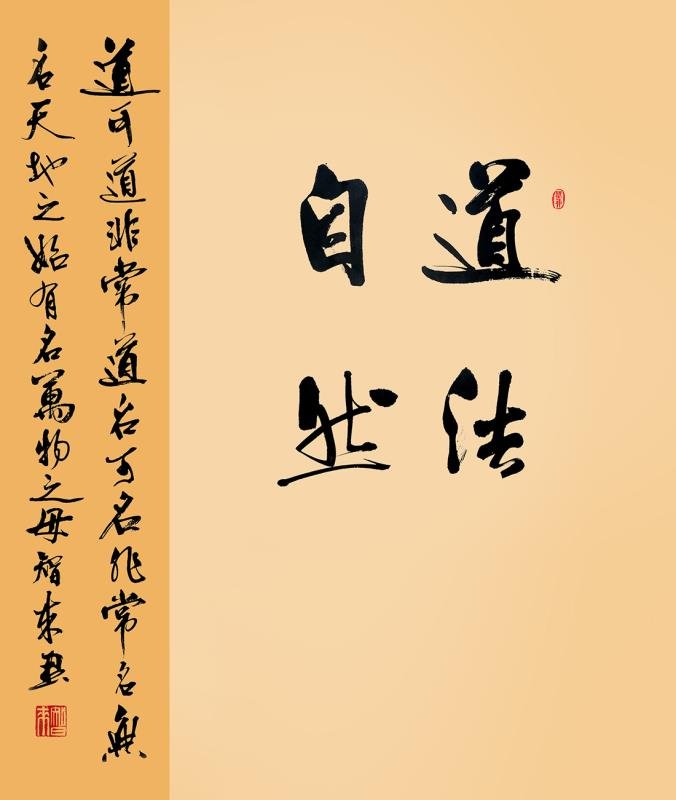 道法
自然
道可道非常道名可名非常名無
名天地之始有名萬物之母智東書